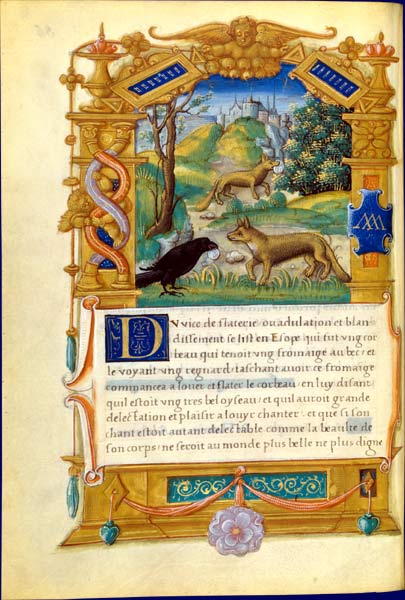 Du vice de flaterie ou adulation et blan
dissement se list en Esope qui fut vng cor
beau qui tenoit vng fromaige au bec / et
le voyant vng regnard / taschant auoir ce fromaige
commancea a louer et flater le corbeau / en luy disant
quil estoit vng tres bel oyseau / et quil auroit grande
delectation et plaisir a louyr chanter / et que si son
chant estoit autant delectable comme la beaulte de
son corps / ne seroit au monde plus belle ne plus digne